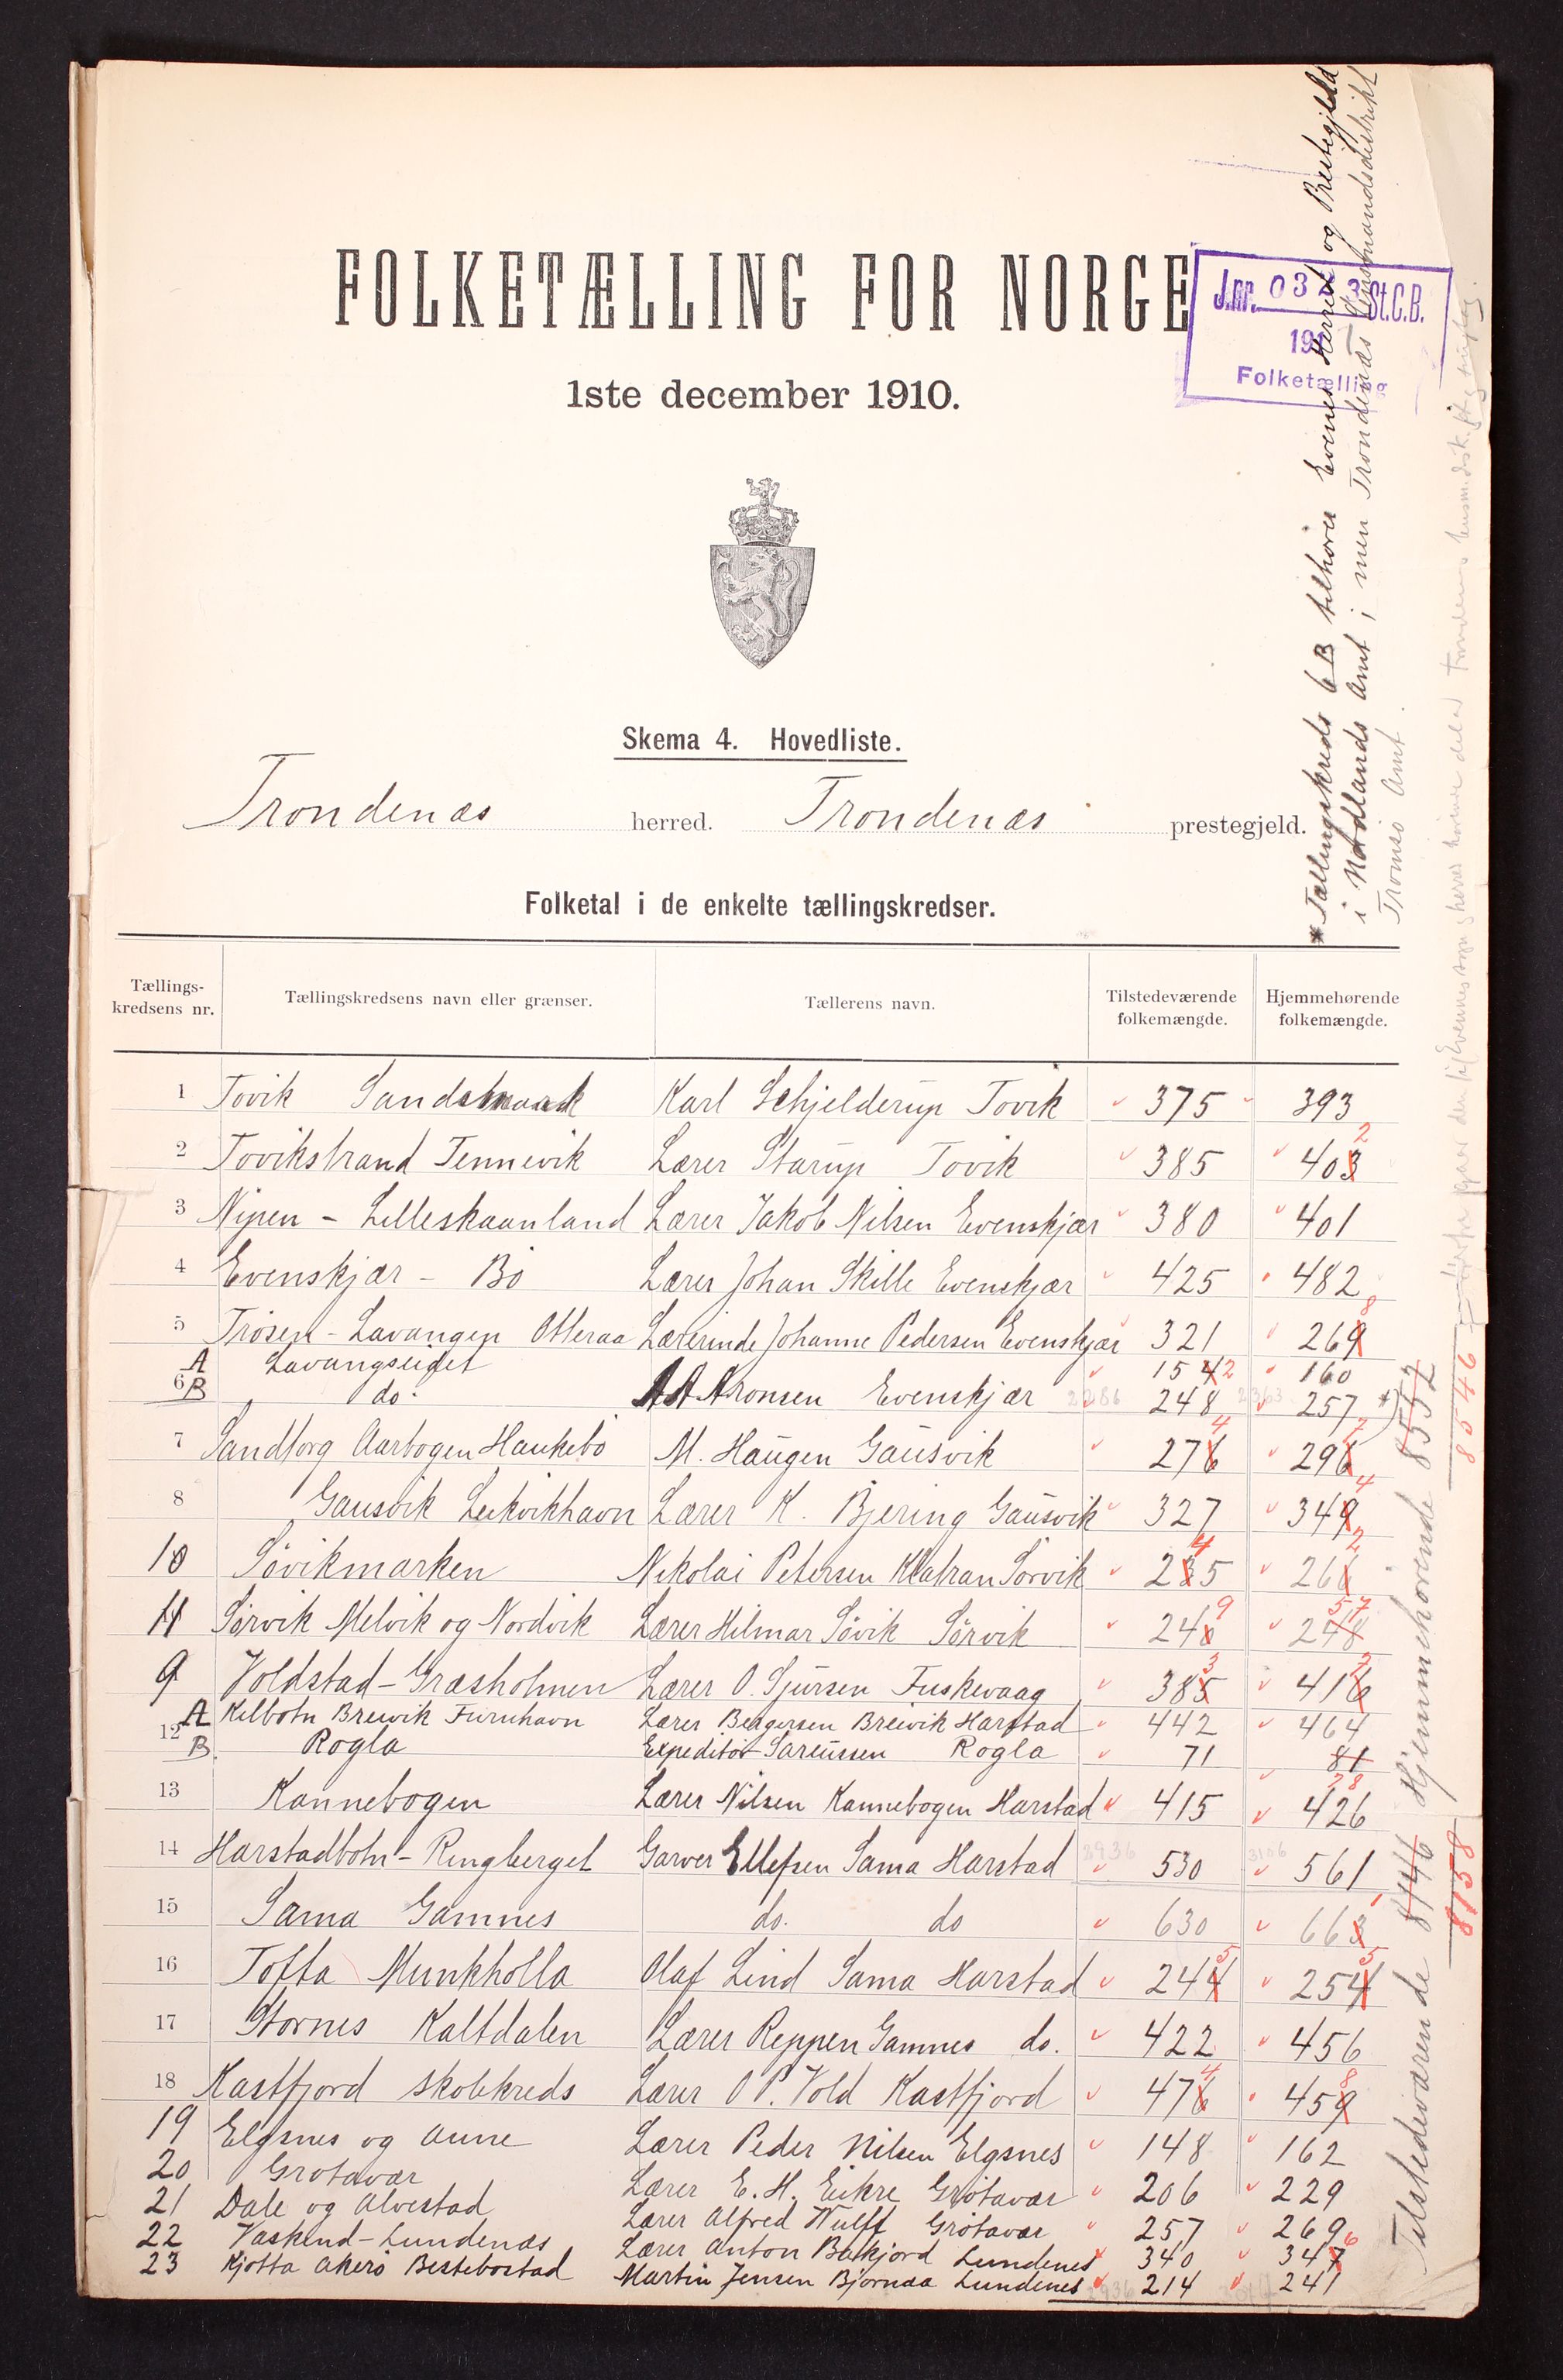 FOLKETÆLLING FOR NORGE
J.nr. 03 3 St.C.B.
191
Folketælling
1ste december 1910.
Skema 4. Hovedliste.
Trondenæs herred. Trondenæs prestegjeld.
Folketal i de enkelte tællingskredser.
Tællings-kredsens nr. Tællingskredsens navn eller grænser. Tællerens navn. Tilstedeværende folkemængde. Hjemmehørende folkemængde.
1 Tovik Sandstraak Karl Schjelderup Tovik 375 393
2 Tovikstrand Tennevik Lærer Starup Tovik 385 403 2
3 Nipen - Lilleskaanland Lærer Jakob Nilsen Evenskjær 380 401
4 Evenskjær - Bø Lærer Johan Skille Evenskjær 425 482
5 Trøsen - Lavangen Otteraa Lærerinde Johanne Pedersen Evenskjær 321 269 8
6 A Lavangseidet 154 2 160
B do. A A Aronsen Evenskjær 248 257 *)
7 Sandtorg Aarbogen Haukebø M. Haugen Gausvik 276 4 296 2
8 Gausvik Leikvikhavn Lærer K. Bjering Gausvik 327 349 4
10 Sövikmarken Nikolai Petersen Klatran Sørvik 235 4 266 2
11 Sørvik Melvik og Nordvik Lærer Hilmar Søvik Sørvik 248 9 278 57
9 Voldstad - Græsholmen Lærer O. Sjursen Fuskevaag 385 3 416 2
12 A Kilbotn Breivik Furuhavn Lærer Bergersen Breivik Harstad 442 464
B Rogla Expeditør Sareussen Rogla 71 81 78
13 Kannebogen Lærer Nilsen Kannebogen Harstad 415 426
14 Harstadbotn - Ringberget Garver Ellefsen Sama Harstad 530 561
15 Sama Gamnes do. do 630 663 1
16 Tofta Munkholla Olaf Lind Sama Harstad 244 5 254 5
17 Stornes Kaltdalen Lærer Reppen Gamnes do. 422 456
18 Kastfjord skolekreds Lærer O P. Vold Kastfjord 476 4 459 8
19 Elgsnes og Aune Lærer Peder Nilsen Elgsnes 148 162
20 Grøtavær Lærer E. H. Eikre Grøtavær 206 229
21 Dale og Alvestad Lærer Alfred Wulff Grøtavær 257 269
22 Vaskind - Lundenæs Lærer Anton Bakkjord Lundenes 340 347 6
23 Kjøtta Akerø Bessebostad Martin Jensen Bjørnaa Lundenes 214 241
* Tællingskreds 6 B tilhører Evenes Herred og Prestegjeld
i Nordlands Amt; men Trondenæs Lensmandsdistrikt
Tromsø Amt.
Tilstedeværende 8146 Hjemmehørende 8552
8158 8546